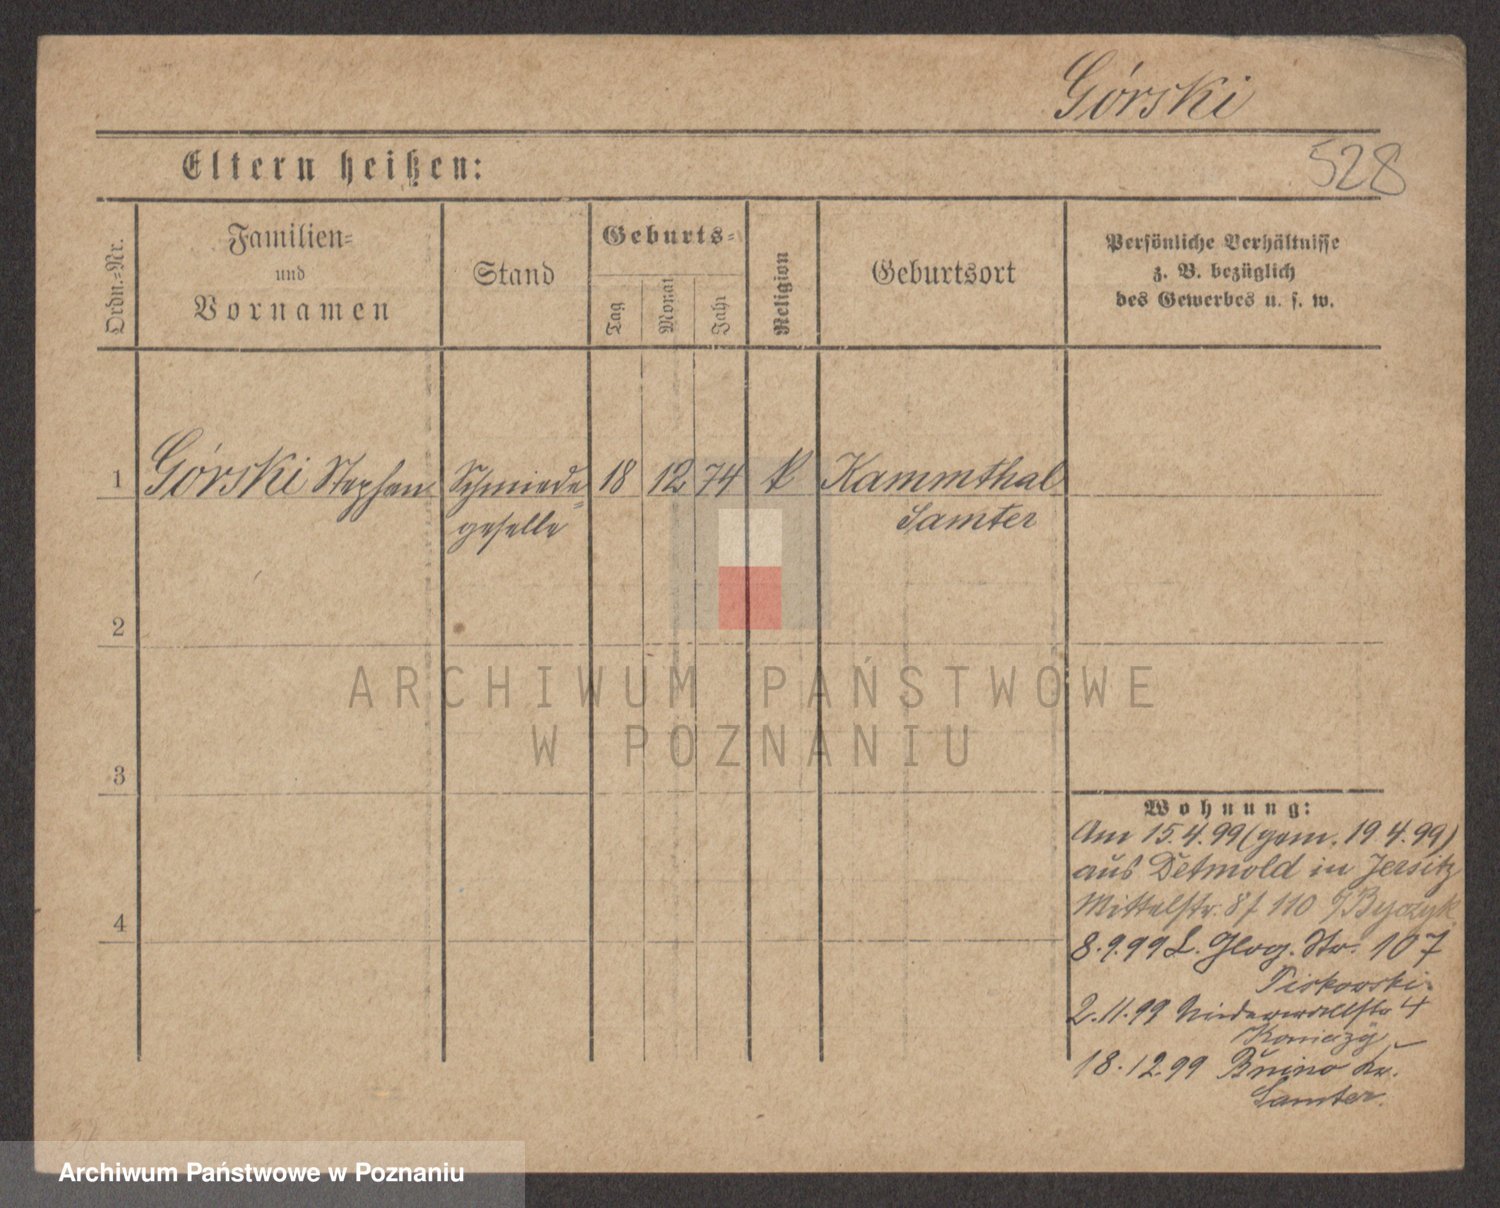 Górski
528
Eltern heißen:
Ordn.-Nr.
Familien-
und
Vornamen
Stand
Geburts-
Tag
Monat
Jahr
Religion
Geburtsort
Persönliche Verhältnisse
z. B. bezüglich
des Gewerbes u. s. w.
1 Górski Stephan Schmiede= 18 12 74 k Kammthal
geselle Samter
2
ARCHIWUM PAŃSTWOWE
W POZNANIU
3
Wohnung:
Am 15.4.99 (gem. 19.4.99)
aus Detmold in Jersitz
Mittelstr. 8 110 Byczyk
4
8.9.99 L. Glog. Str. 107
Piskorski
2.11.99 Niederwallstr 4
18.12.99 Bnino Kr.
Samter.
Archiwum Państwowe w Poznaniu